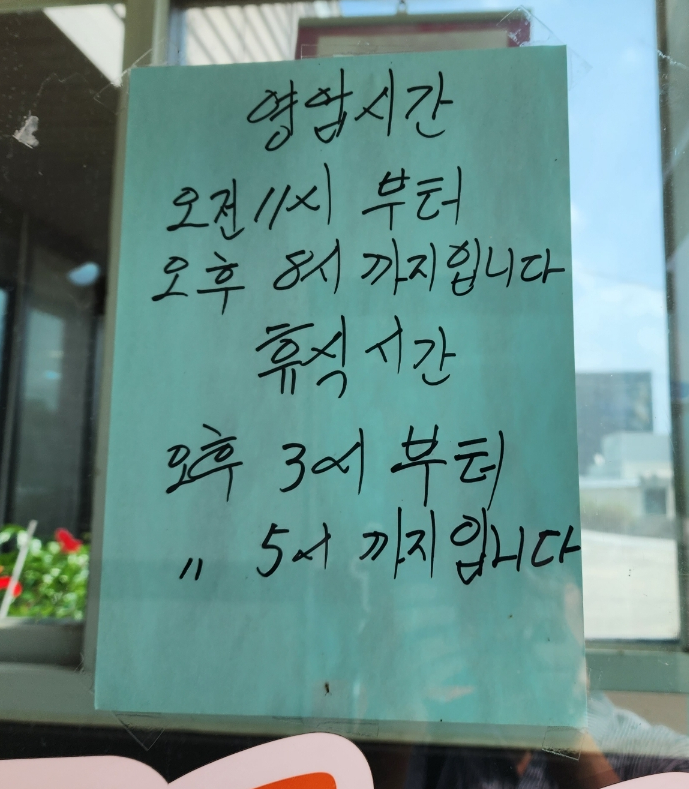 영업시간
오전 11시 부터
오후 8시 까지입니다
휴식 시간
오후 3시 부터
〃 5시 까지입니다